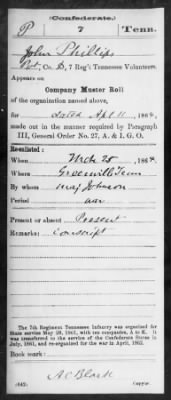 (Confederate.)
P 7 Tenn.
John Phillips
Pvt., Co. D, 7 Reg't Tennessee Volunteers.
Appears on
Company Muster Roll
of the organization named above,
for dated Apl 11, 186
made out in the manner required by Paragraph
III, General Order No. 27, A. & I. G. O.
Re-enlisted:
When Mch 25, 186
Where Greenville Tenn
By whom Maj Johnson
Period war
Present or absent Present
Remarks: conscript
The 7th Regiment Tennessee Infantry was organized for
State service May 25, 1861, with ten companies, A to K. It
was transferred to the service of the Confederate States in
July, 1861, and re-organized for the war in April, 1862.
Book mark:
A C Black
(642) Copyist.